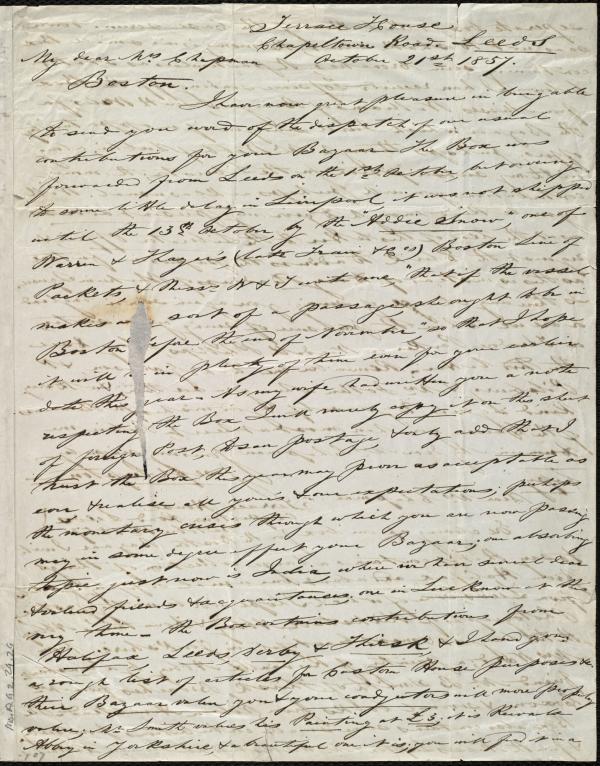 Terrace House
Chapeltown Road Leeds
My dear Mrs Chapman October 21st 1857.
Boston.
I have now great pleasure in being able
to send you word of the dispatch of our usual
contributions for your Bazaar. The Box was
forwarded from Leeds on the October, but owing
to some little delay in Liverpool, it was not shipped
until the 13th October, by the "Addie Snow," one of
Warren & Thayer's, (late Train & Co's) Boston Line of
Packets, & Messrs W & T write me, "that if the vessel
makes any sort of a passage, she ought to be in
Boston before the end of November" so that I hope
it will be in plenty of time even for your earlier
date this year. As my wife had written you a note
respecting the Box, I will merely copy it on the sheet
of foreign Post, to save postage, & only add that I
trust the Box this year may prove as acceptable as
ever & realise all your's & our expectations; perhaps
the monetary crisis through which you are now passing
may in some degree affect your Bazaar; one absorbing
topic just now is India, where we have several dear
& valued friends & acquaintances, one in Lucknow at this
very time. The Box contains contributions from
Halifax Leeds, Derby & Thirsk, & I send you
a rough list of articles for Custom House purposes &
their Bazaar value, you & your conductors will more properly
value; Mr. Smith values his Painting at £3; it is Rievaulx
Abbey in Yorkshire & a beautiful one it is; you will find it in a
Ms.A.9.2.29.26